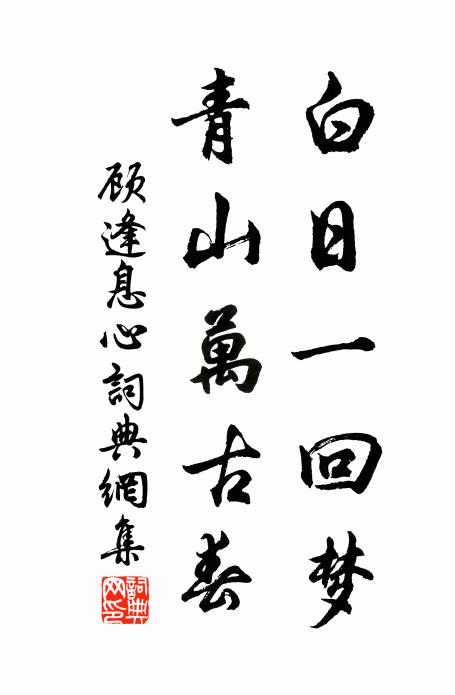 白日一回梦
青山萬古春
顾逢息心詞典網集
詞典
网印